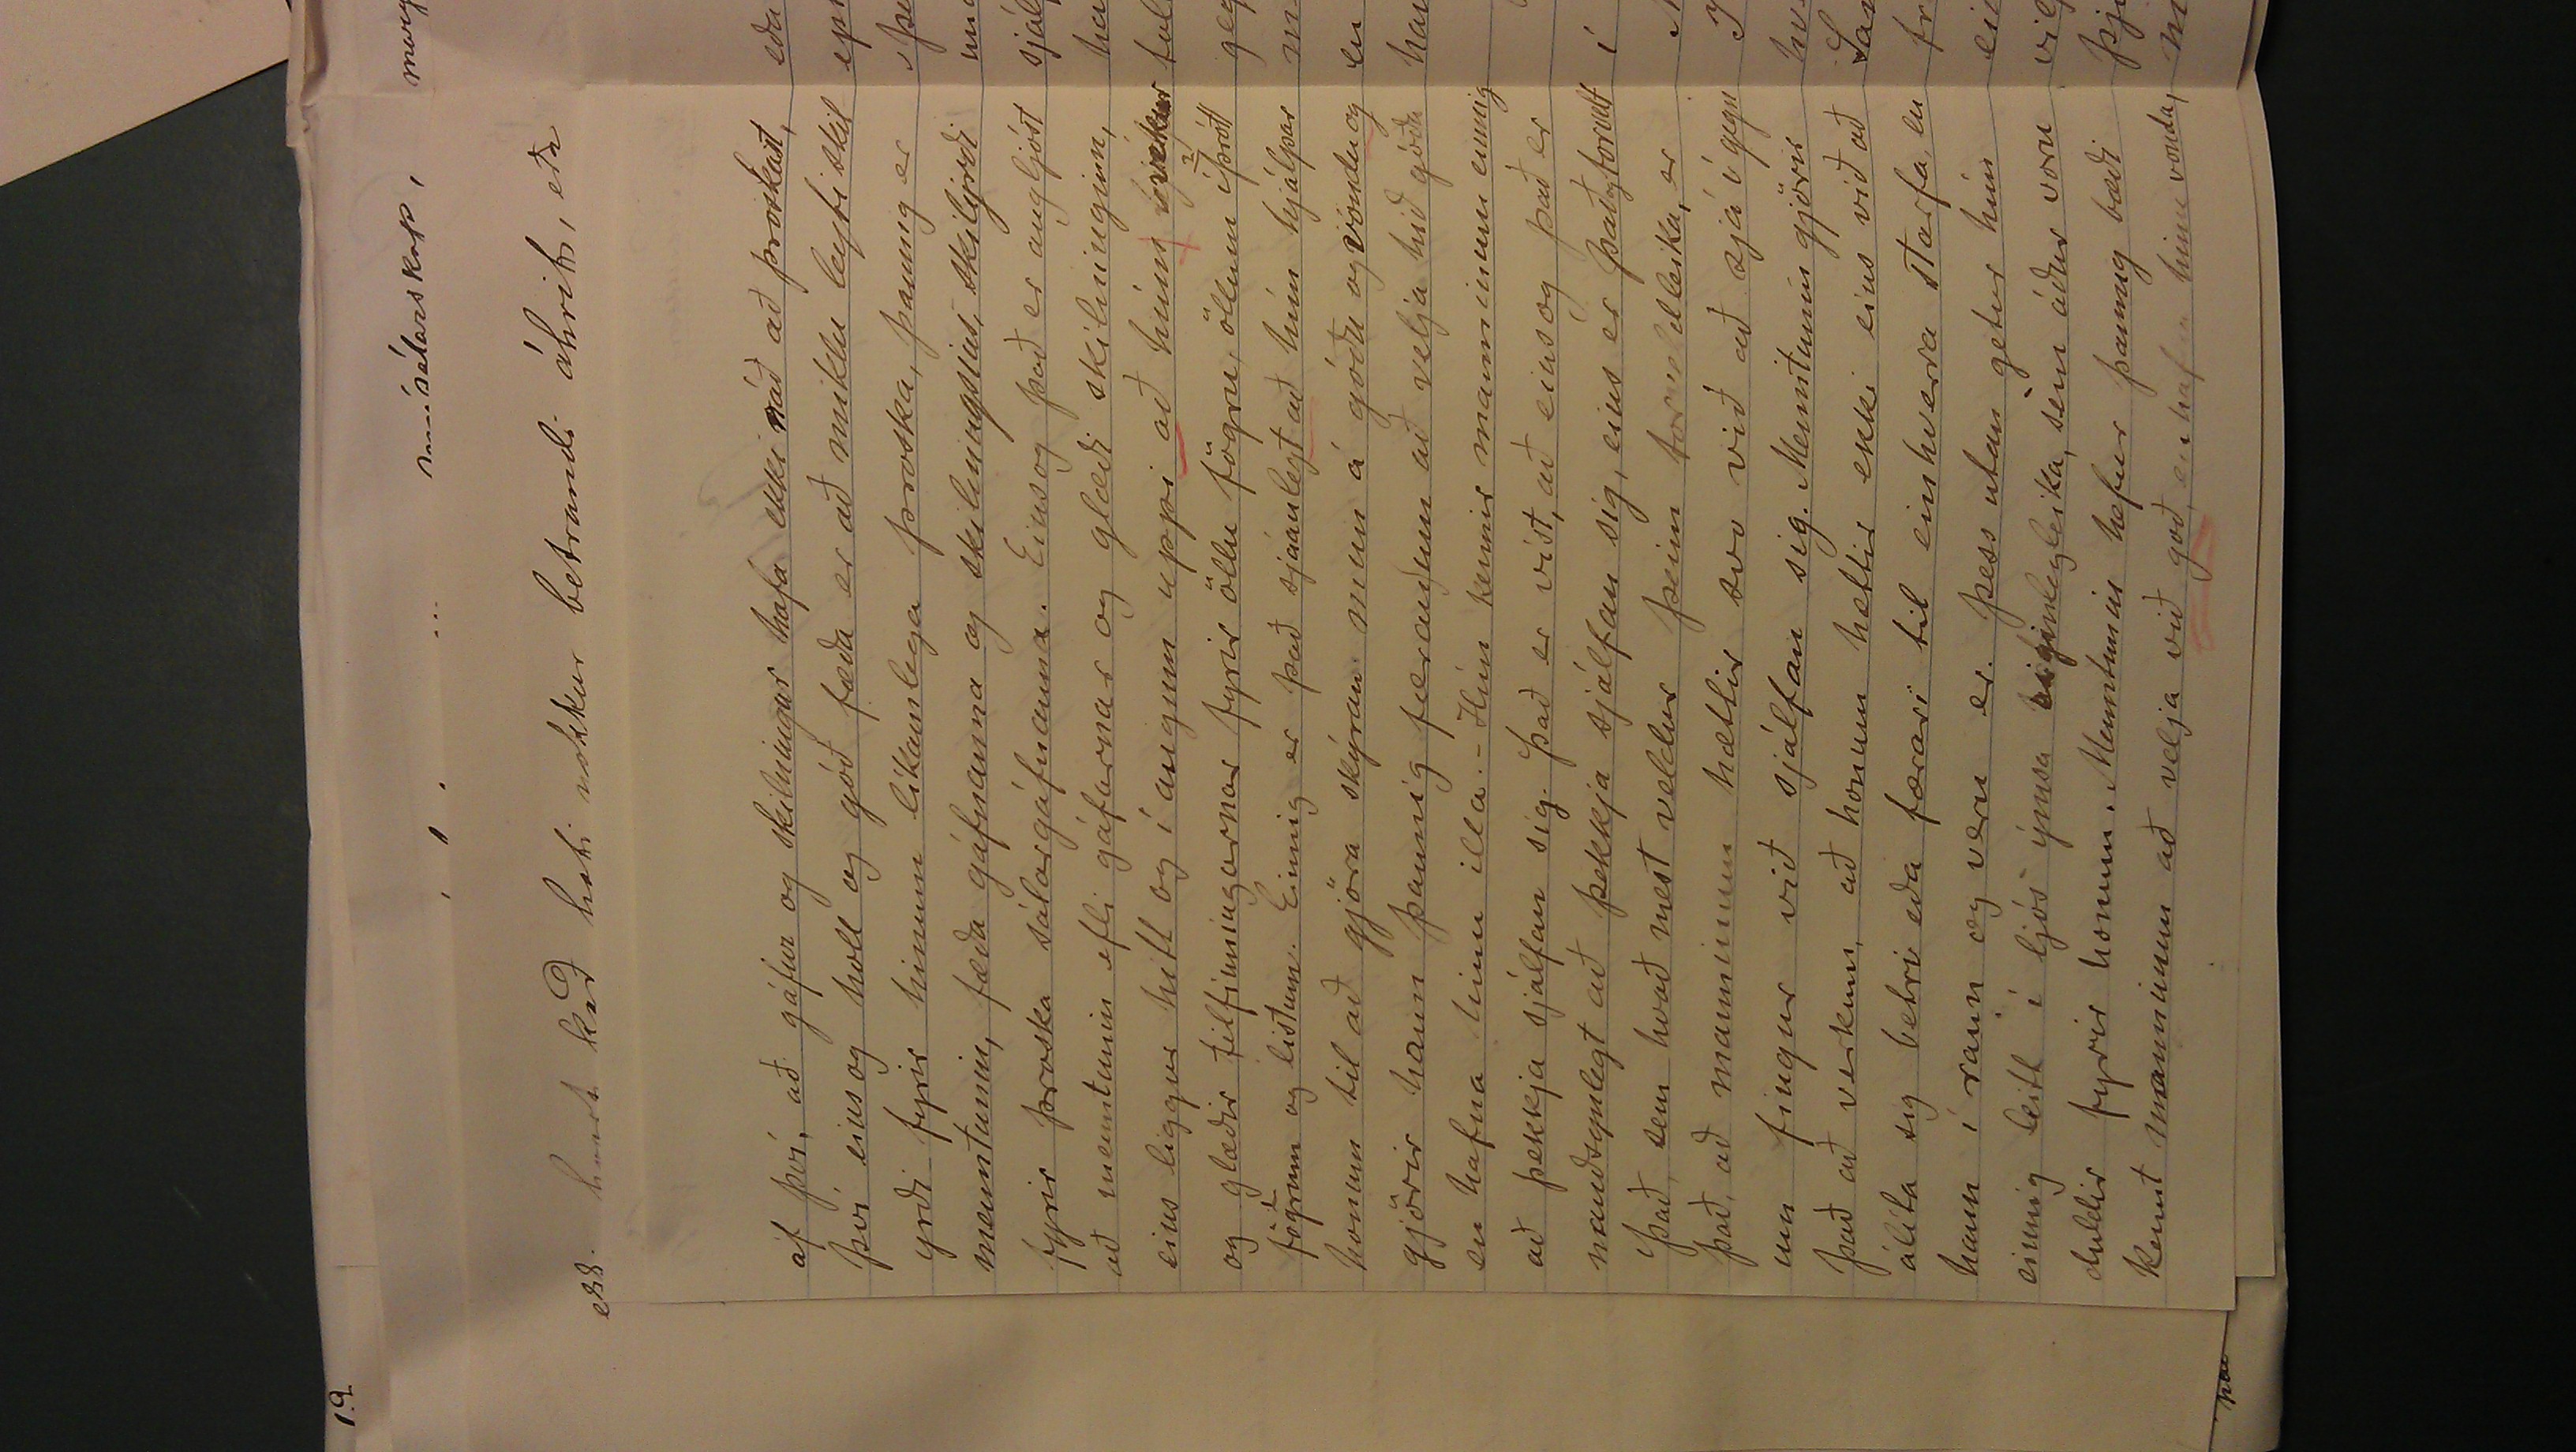 19.
af því, að gáfur og skilningur hafa ekki náð að þroskast,
því eins og holl og góð fæða er að miklu leyti skil
yrði fyrir hinum líkamlega þroska, þannig er
menntunin, fæða gáfnanna og skilningsins, skilyrði
fyrir þroska sálargáfnanna. Eins og það er augljóst
að menntunin efli gáfurnar og glæði skilninginn,
eins liggur hitt og í augum uppi að húns vekur
og glæðir tilfinningarnar fyrir öllu fögru, öllum íþrótt
fögrum og listum. Einnig er það sjáanlegt að hún hjálpar
honum til að gjöra skýran mun á góðu og vondu og
gjörir hann þannig færaðum að velja hið góða
en hafna hinu illa. - Hún kennir manninum einnig
að þekkja sjálfan sig. Það er víst, að eins og það er
nauðsynlegt að þekkja sjálfan sig, eins er það torvelt
Það, sem hvað mest veldur þeim torveldleika, er
það, að manninum hættir svo við að sjá í gegn
um fingur við sjálfan sig. Menntunin gjörir
það að verkum, að honum hættir ekki eins við að
álíta sig betri eða færari til einhvera starfa, en
hann í raun og veru er. Þess utan getur hún
einnig leitt í ljós ýmsa eiginlegleika, sem áður voru
duldir fyrir honum. Menntunin hefur þannig bæði
kennt manninum að velja við goð, en hafna hinu vonda,